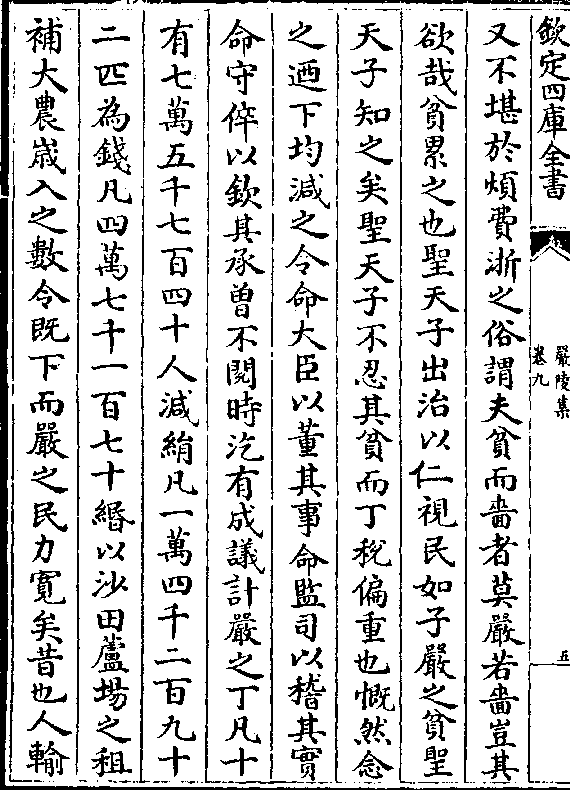 欽定四庫全書
嚴陵集
卷九
五
又不堪於煩費浙之俗謂夫貧而嗇者莫嚴若嗇豈其
欲哉貧累之也聖天子出治以仁視民如子嚴之貧聖
天子知之矣聖天子不忍其貧而丁税偏重也慨然念
之迺下均減之令命大臣以董其事命監司以稽其實
命守倅以欽其承曽不閱時汔有成議計嚴之丁凡十
有七萬五千七百四十人減絹凡一萬四千二百九十
二匹為錢凡四萬七千一百七十緡以沙田蘆場之租
補大農嵗入之數令既下而嚴之民力寛矣昔也人輸